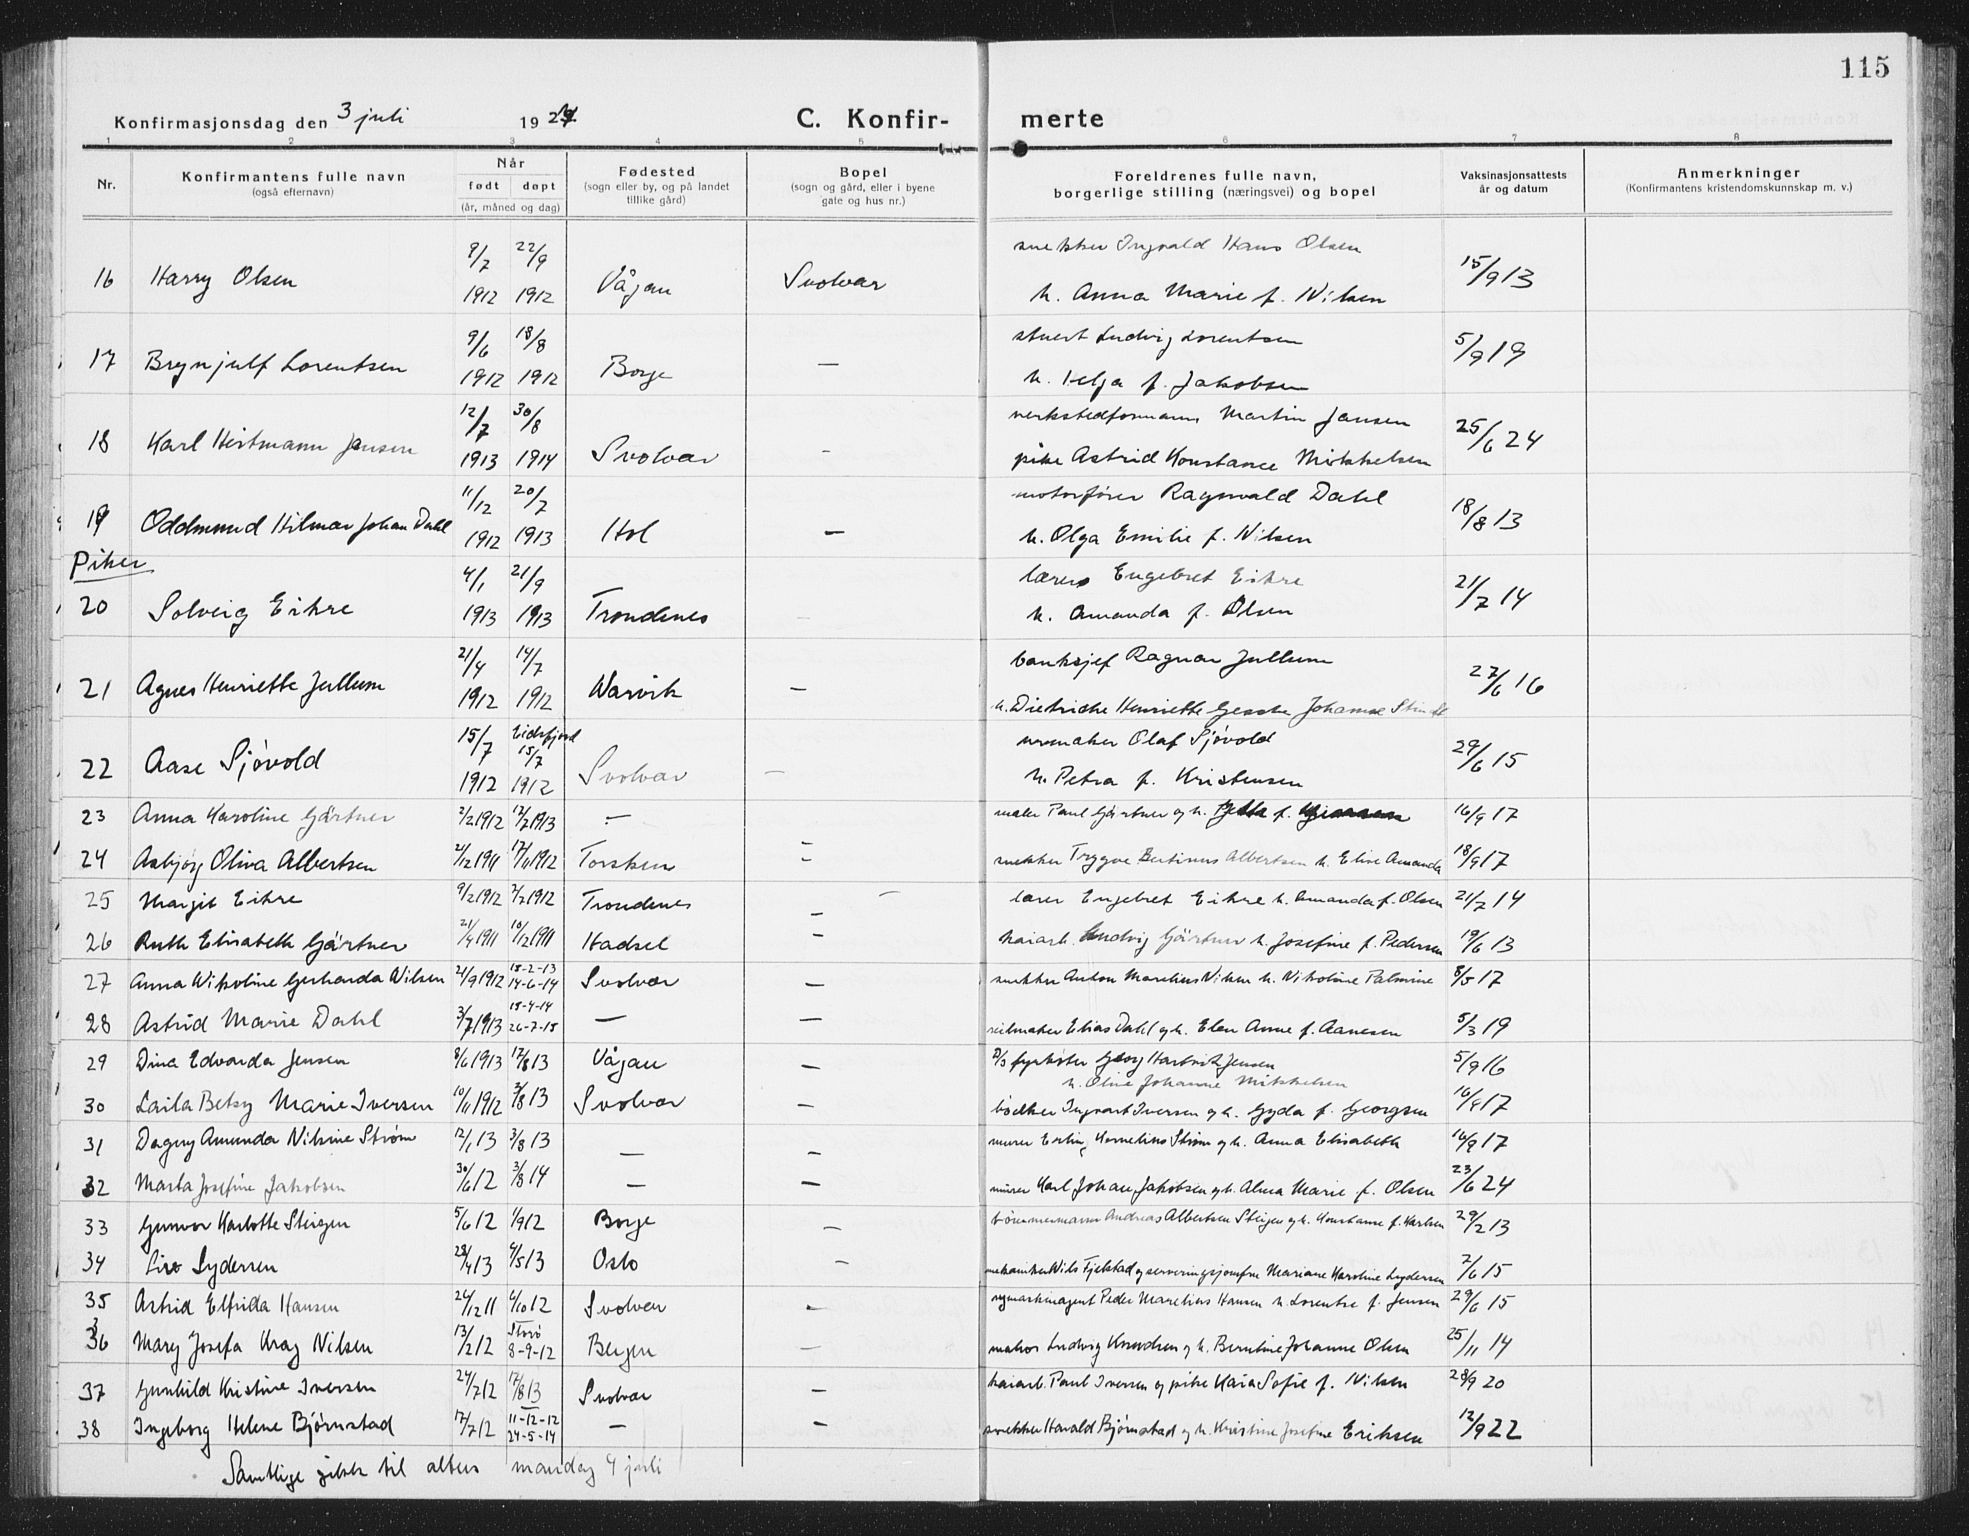 115
Konfirmasjonsdag den 3 juli 19 C. Konfir- merte
1 2 3 4 5 6 7 8
Nr. Konfirmantens fulle navn (også efternavn) Når født døpt (år, måned og dag) Fødested (sogn eller by, og på landet tillike gård) Bopel (sogn og gård, eller i byene gate og hus nr.) Foreldrenes fulle navn, borgerlige stilling (næringsvei) og bopel Vaksinasjonsattests år og datum Anmerkninger (Konfirmantens kristendomskunnskap m. v.)
16 Harry Olsen 9/7 1912 22/9 1912 Vågan Svolvær snekker Ingvald Hans Olsen h. Anna Marie f. Nilsen 15/9 13
17 Brynjulf Lorentsen 9/6 1912 18/8 1912 Borge — stuert Ludvig Lorentsen h. Helga f. Jakobsen 5/9 19
18 Karl Hertmann Jensen 12/7 1913 30/8 1914 Svolvær - verkstedformann Martin Jansen pike Astrid Konstance Mikkelsen 25/6 24
19 Oddmund Hilmar Johan Dahl 11/12 1912 20/7 1913 Hol — motorfører Ragnvald Dahl h. Olga Emilie f. Nilsen 18/8 13
Piker
20 Solveig Eikre 4/1 1913 21/9 1913 Trondenes - lærer Engebret Eikre h. Amanda f. Olsen 21/7 14
21 Agnes Henriette Jullum 21/4 1912 14/7 1912 Narvik — banksjef Ragnar Jullum h. Dietriche Henriette Gesche Johanne 27/6 16
22 Aase Sjövold 15/7 1912 Eidsfjord 15/7 1912 Svolvær — urmaker Olaf Sjövold h. Petra f. Kristensen 29/6 15
23 Anna Karoline Gärtner 2/2 1912 12/2 1913 — maler Paul Gärtner og h. f. 16/9 17
24 Asbjøg Oliva Albertsen 2/12 1911 17/11 1912 Torsken - snekker Trygve Bertinus Albertsen h. Elise Amanda 18/9 17
25 Margit Eikre 9/2 1912 7/7 1912 Trondenes — lærer Engebret Eikre h. Amanda f. Olsen 21/7 14
26 Ruth Elisabeth Gärtner 21/4 1911 10/12 1911 Hadsel — kaiarb. Ludvig Gärtner h. Josefine f. Pedersen 19/6 13
27 Anna Nikoline Gerharda Nilsen 21/9 1912 15-2-13 14-6-14 Svolvær — snekker Anton Marelius Nilsen h. Nikoline Palmine 8/5 17
28 Astrid Marie Dahl 3/7 1913 15-4-14 26-7-15 — — seilmaker Elias Dahl og h. Elen Anne f. Aanesen 5/3 19
29 Dina Edvarda Jensen 8/6 1913 17/8 13 Vågan — fyrbøter Georg Hartvik Jensen h. Oline Johanne Mikkelsen 5/9 16
30 Laila Betsy Marie Iversen 10/11 1912 3/8 13 Svolvær — bødker Ingvart Iversen og h. Gyda f. Georgsen 16/9 17
31 Dagny Amunda Nilsine Strøm 12/1 13 3/8 13 — — murer Erling Kornelius Strøm og h. Anna Elisabeth 16/9 17
32 Marta Josefine Jakobsen 30/6 12 3/8 14 — — murer Karl Johan Jakobsen og h. Alma Marie f. Olsen 23/6 24
33 Gunvor Karlotte Steigen 5/6 12 1/9 12 Borge — Andreas Albertsen Steigen og h. Konstanse f. Karlsen 29/2 13
34 Liv Lydersen 28/4 13 4/5 13 Oslo — mekaniker Nils Fjelstad og serveringsjomfru Mariane Karoline Lydersen 7/6 15
35 Astrid Elfrida Hansen 24/12 11 6/10 12 Svolvær - symaskinagent Peder Marelius Hansen h. Lorentse f. Jensen 29/6 15
36 Mary Josefa Krag Nilsen 13/2 12 8-9-12 Bergen — Ludvig Knudsen og h. Berntine Johanne Olsen 25/11 14
37 Gunhild Kristine Iversen 24/7 12 17/8 13 Svolvær — kaiarb. Paul Iversen og pike Kaia Sofie f. Nilsen 28/9 20
38 Ingeborg Helene Bjørnstad 17/7 12 11-12-12 24-5-14 — — snekker Harald Bjørnstad og h. Kristine Josefine Eriksen 12/9 22
Samtlige gikk til alters mandag 4 juli